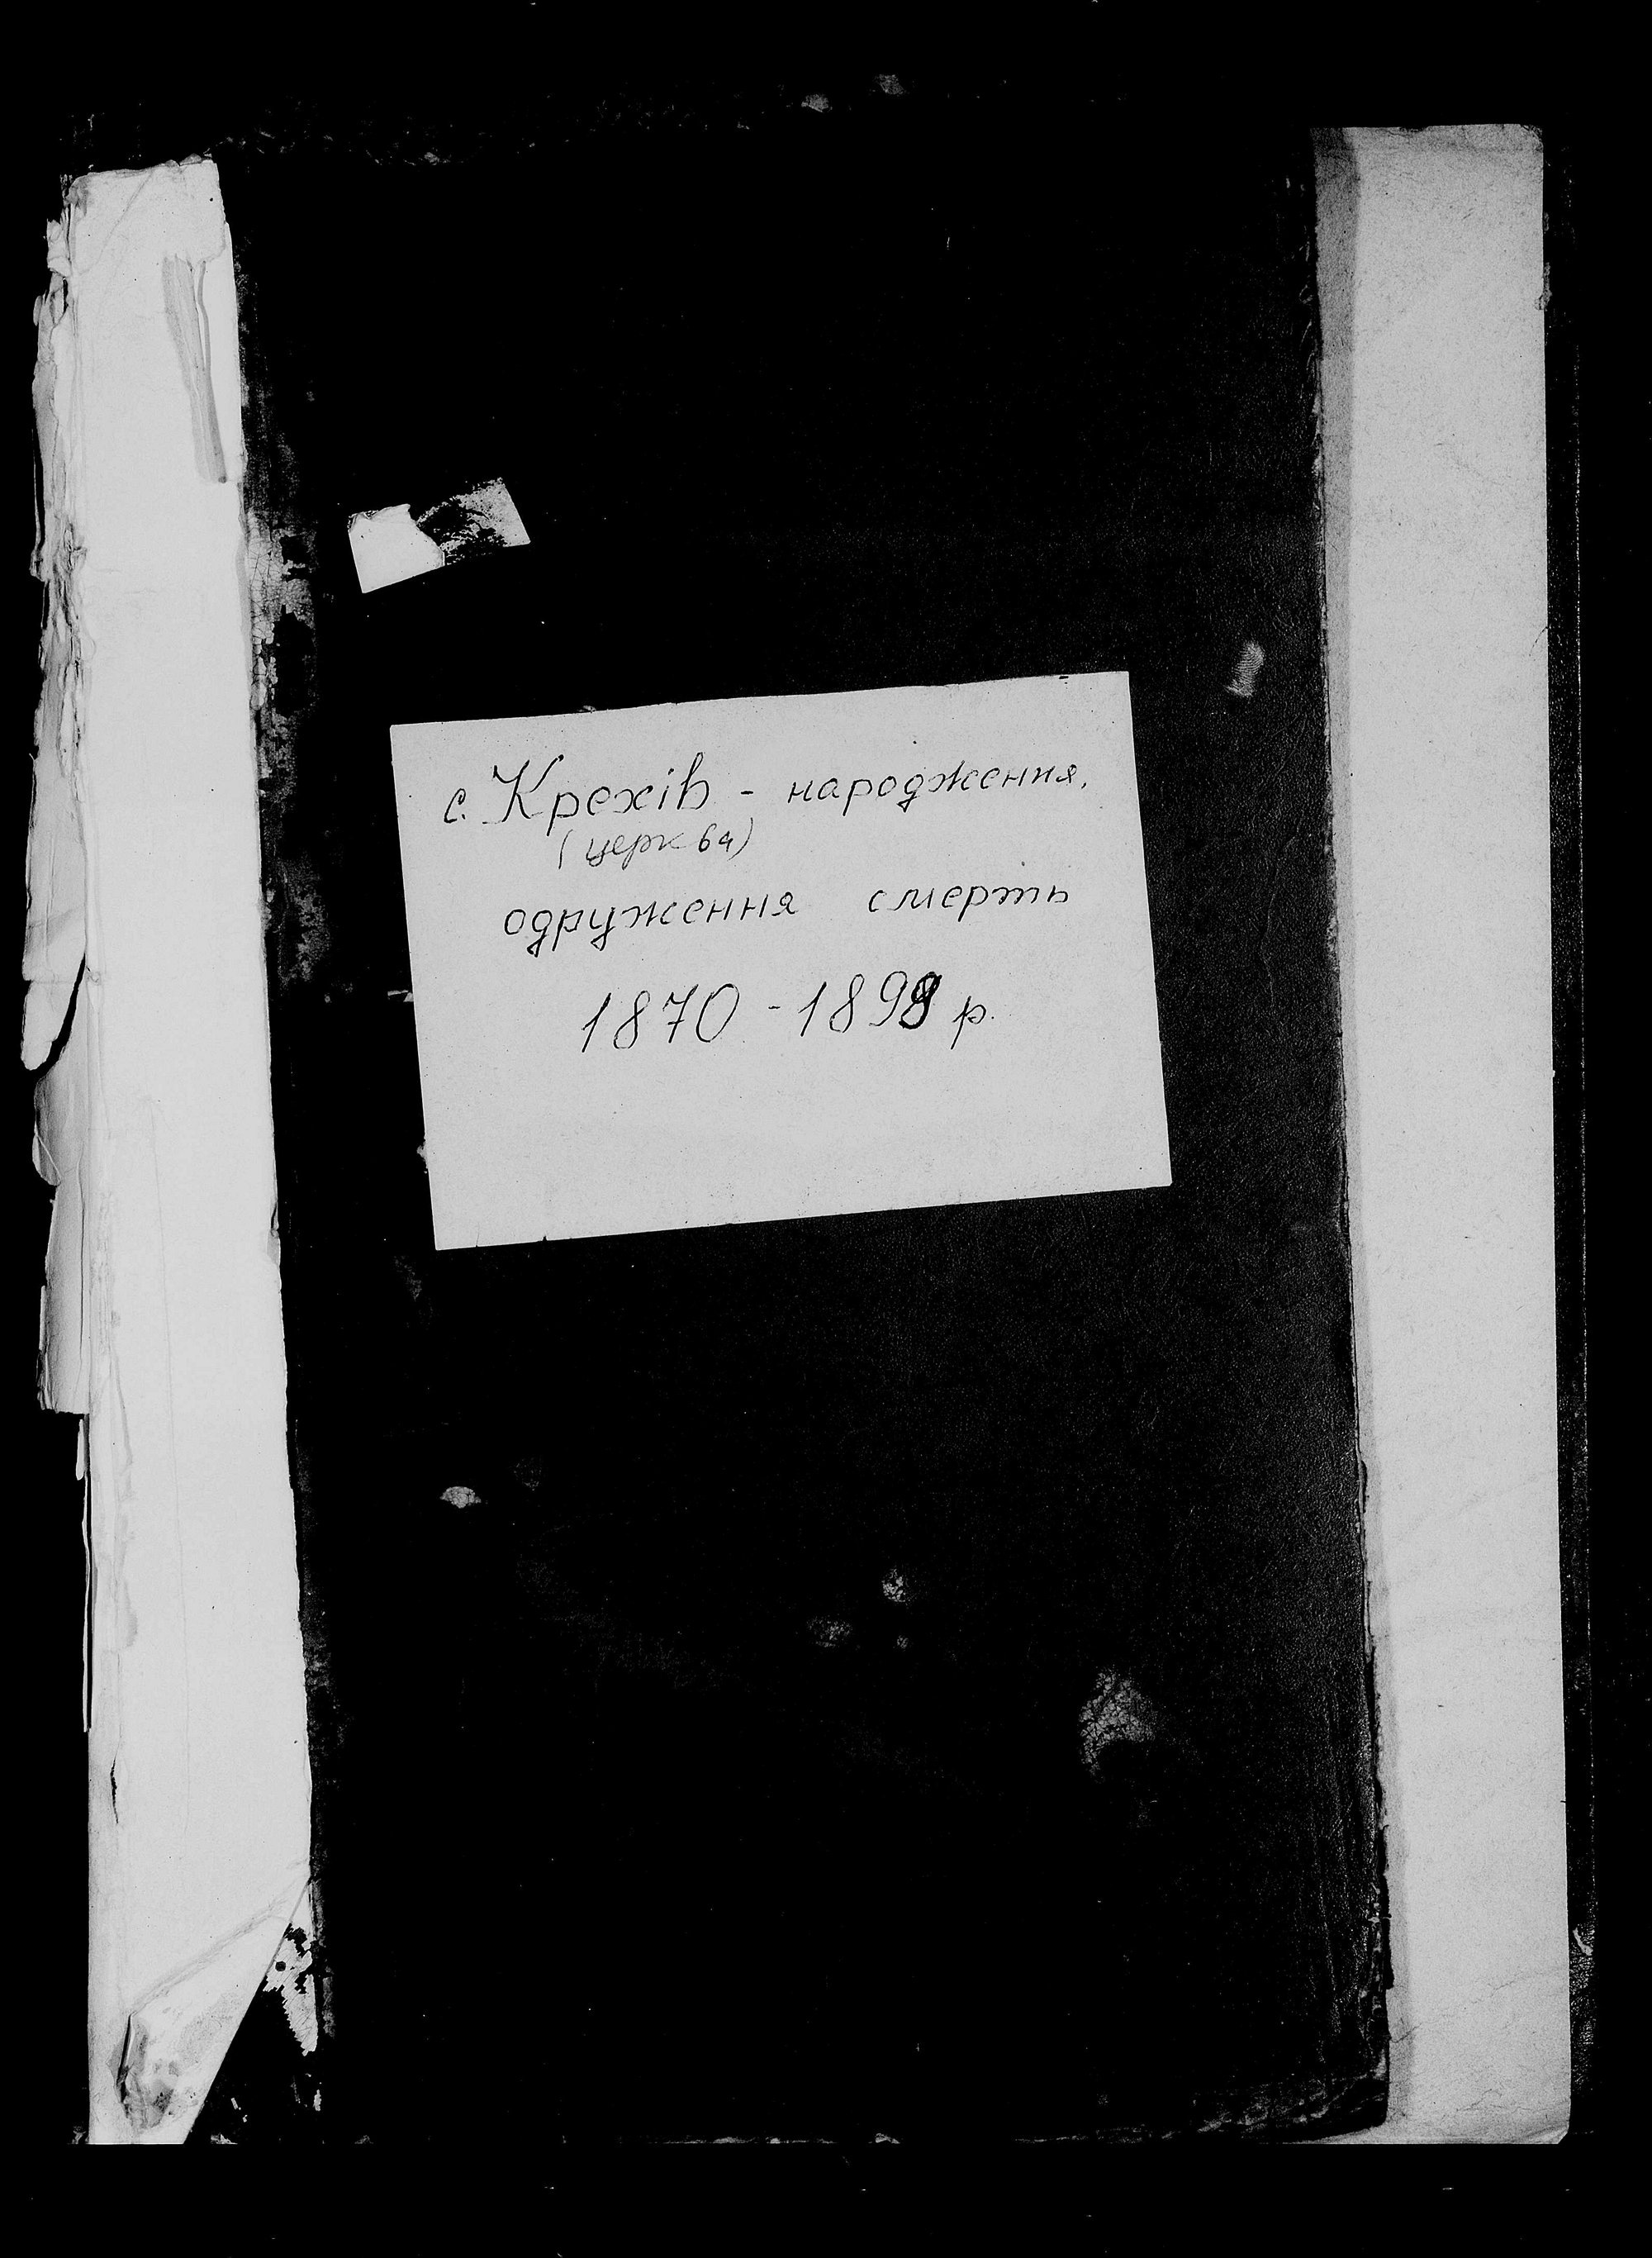 с. Крехів - народження,
(церква)
одруження смерть
1870 - 1898 р.